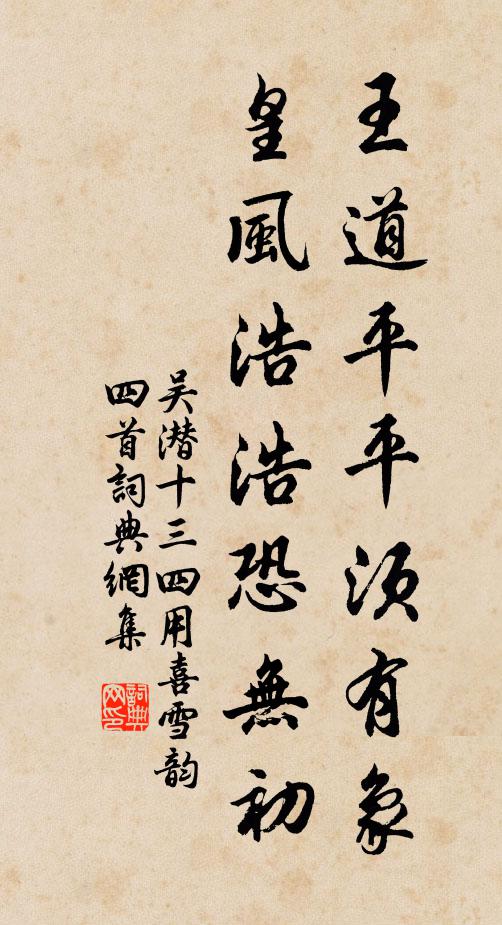 王道平平須有象
皇風浩浩恐無初
吴潜十三四用喜雪韵
四首詞典網集
詞典网印